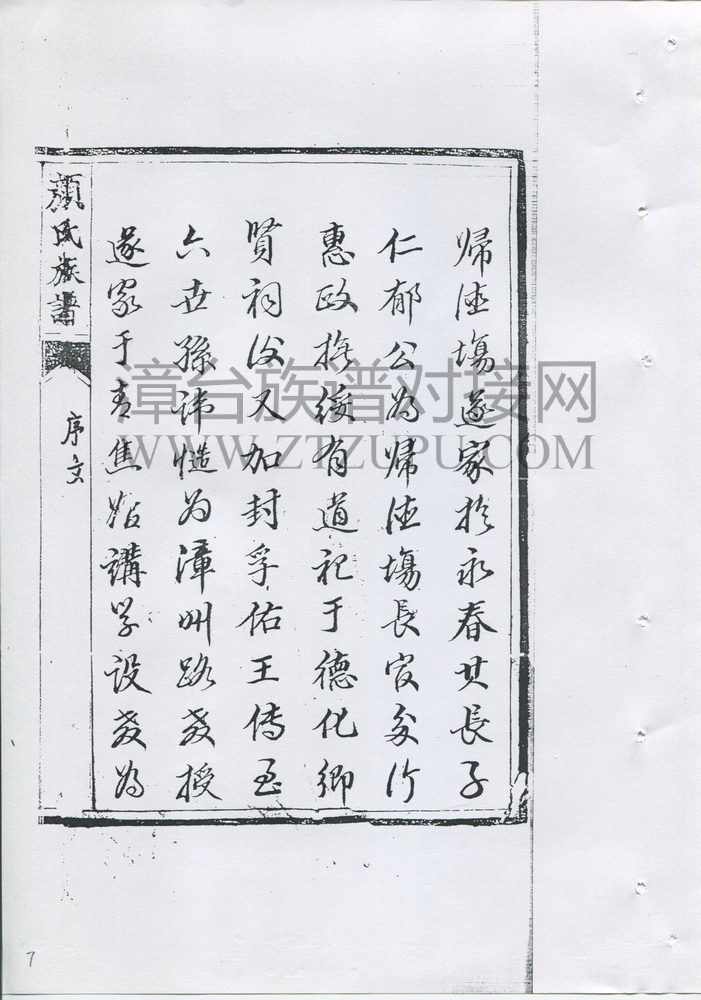 歸德場遂家於永春其長子
仁郁公為歸德場長官多行
惠政撫綏有道祀于德化鄉
賢祠後又加封孚佑王傳至
六世孫諱慥為漳州路教授
遂家于青焦始講學設教為
顏氏族譜
序文
漳台族谱对接网
WWW.ZTZUPU.COM
7